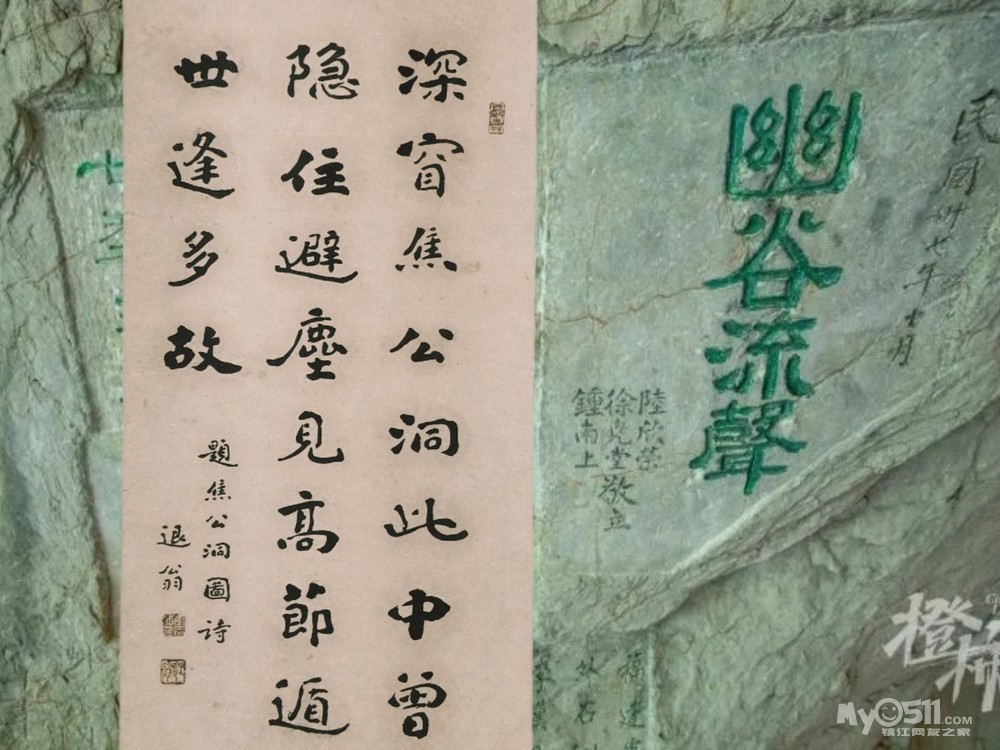 深窅焦公洞此中曾
隐住避塵見高節遁
世逢多故
題焦公洞圖詩
退翁
民国卅七年十月
幽谷流聲
陸欣榮
徐堯堂敬立
鍾南上
橙柿
My0511.com
镇江网友之家